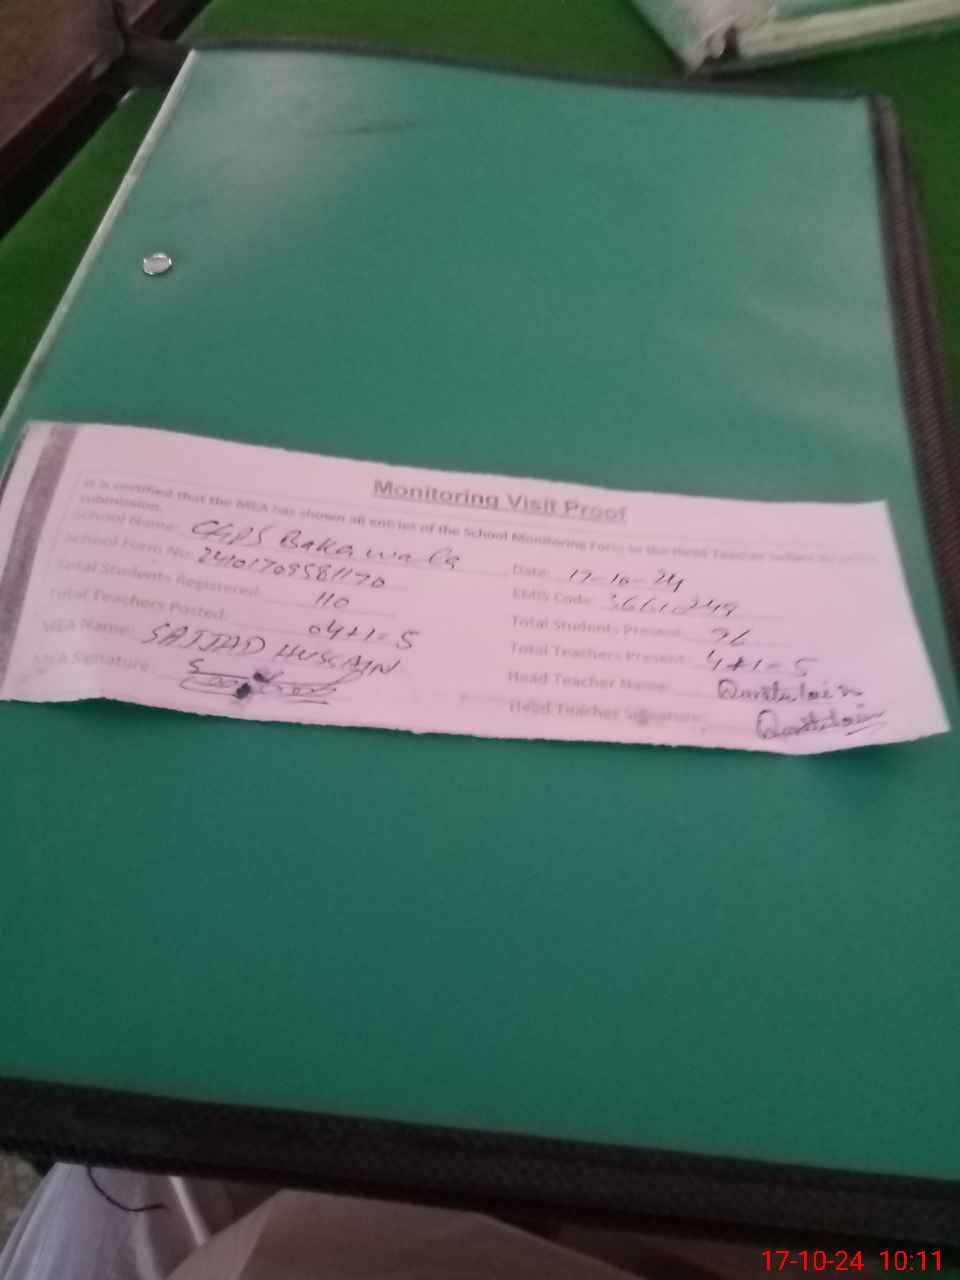 Monitoring Visit Proof
It is certified that the MEA has shown all entries of the School Monitoring Form to the Head Teacher before its
submission.
School Name: GGPS Bakawala
Date: 17-10-24
School Form No: 24101709581170
EMIS Code: 36610249
Total Students Registered: 110
Total Students Present: 96
Total Teachers Posted: 04+1=5
Total Teachers Present: 4+1=5
MEA Name: SAJJAD HUSSAIN
Head Teacher Name: Quratulain
MEA Signature:
Head Teacher Signature: Quratulain
17-10-24 10:11